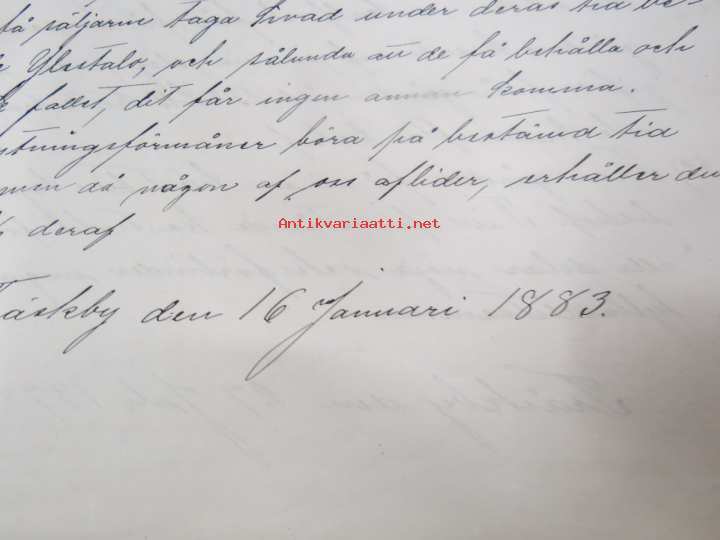 få säljarne taga hvad under deras tid be-
Ylistalo, och sålunda att de få behålla och
fallet, dit får ingen annan komma.
stningsförmåner böra på bestämd tid
men då någon af oss aflider, erhåller den
deraf
Antikvariaatti.net
Täskby den 16 Januari 1883.